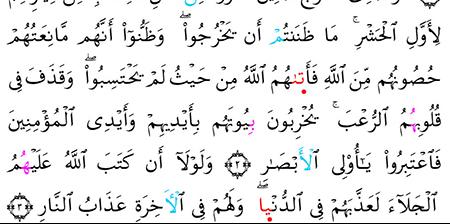 لِأَوَّلِ ٱلۡحَشۡرِۚ مَا ظَنَنتُمۡ أَن يَخۡرُجُواْۖ وَظَنُّوٓاْ أَنَّهُم مَّانِعَتُهُمۡ
حُصُونُهُم مِّنَ ٱللَّهِ فَأَتَىٰهُمُ ٱللَّهُ مِنۡ حَيۡثُ لَمۡ يَحۡتَسِبُواْۖ وَقَذَفَ فِي
قُلُوبِهِمُ ٱلرُّعۡبَۚ يُخۡرِبُونَ بُيُوتَهُم بِأَيۡدِيهِمۡ وَأَيۡدِي ٱلۡمُؤۡمِنِينَ
فَٱعۡتَبِرُواْ يَٰٓأُوْلِي ٱلۡأَبۡصَٰرِ ٢ وَلَوۡلَآ أَن كَتَبَ ٱللَّهُ عَلَيۡهِمُ
ٱلۡجَلَآءَ لَعَذَّبَهُمۡ فِي ٱلدُّنۡيَاۖ وَلَهُمۡ فِي ٱلۡأٓخِرَةِ عَذَابُ ٱلنَّارِ ٣